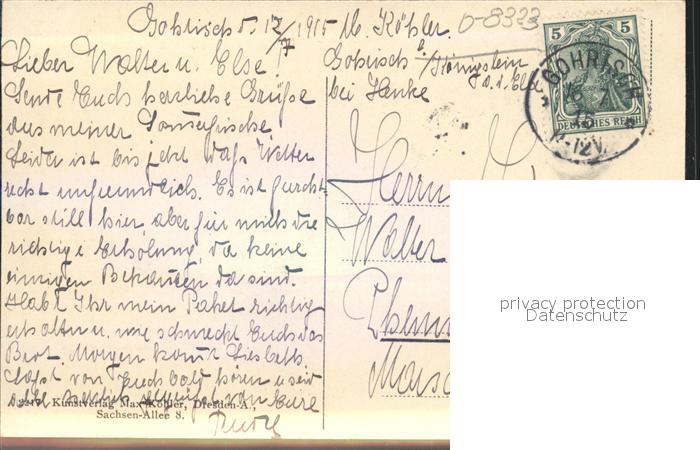 Gohrisch d. 17/7 1915 Ab. Köhler.
D-8323
Lieber Walter u. Else!
Sende Euch herzliche Grüße
aus meiner Sommerfrische
Leider ist bis jetzt das Wetter
recht unfreundlich. Es ist furcht-
bar still hier, aber für mich die
richtige Erholung, da keine
einzigen Bekannten da sind.
Habt Ihr mein Paket richtig
erhalten u. wie schmeckt Euch das
Brot. Morgen kommt Liesbeth
Laßt von Euch bald hören u seid
herzlich gegrüßt von Eure
Gohrisch b/Königstein
a. d. Elbe
bei Henke
5 5
DEUTSCHES REICH
GOHRISCH
-12V.
Herrn
Walter
Chemn
privacy protection
Datenschutz
Kunstverlag Max Köhler, Dresden-A.,
Sachsen-Allee 8.